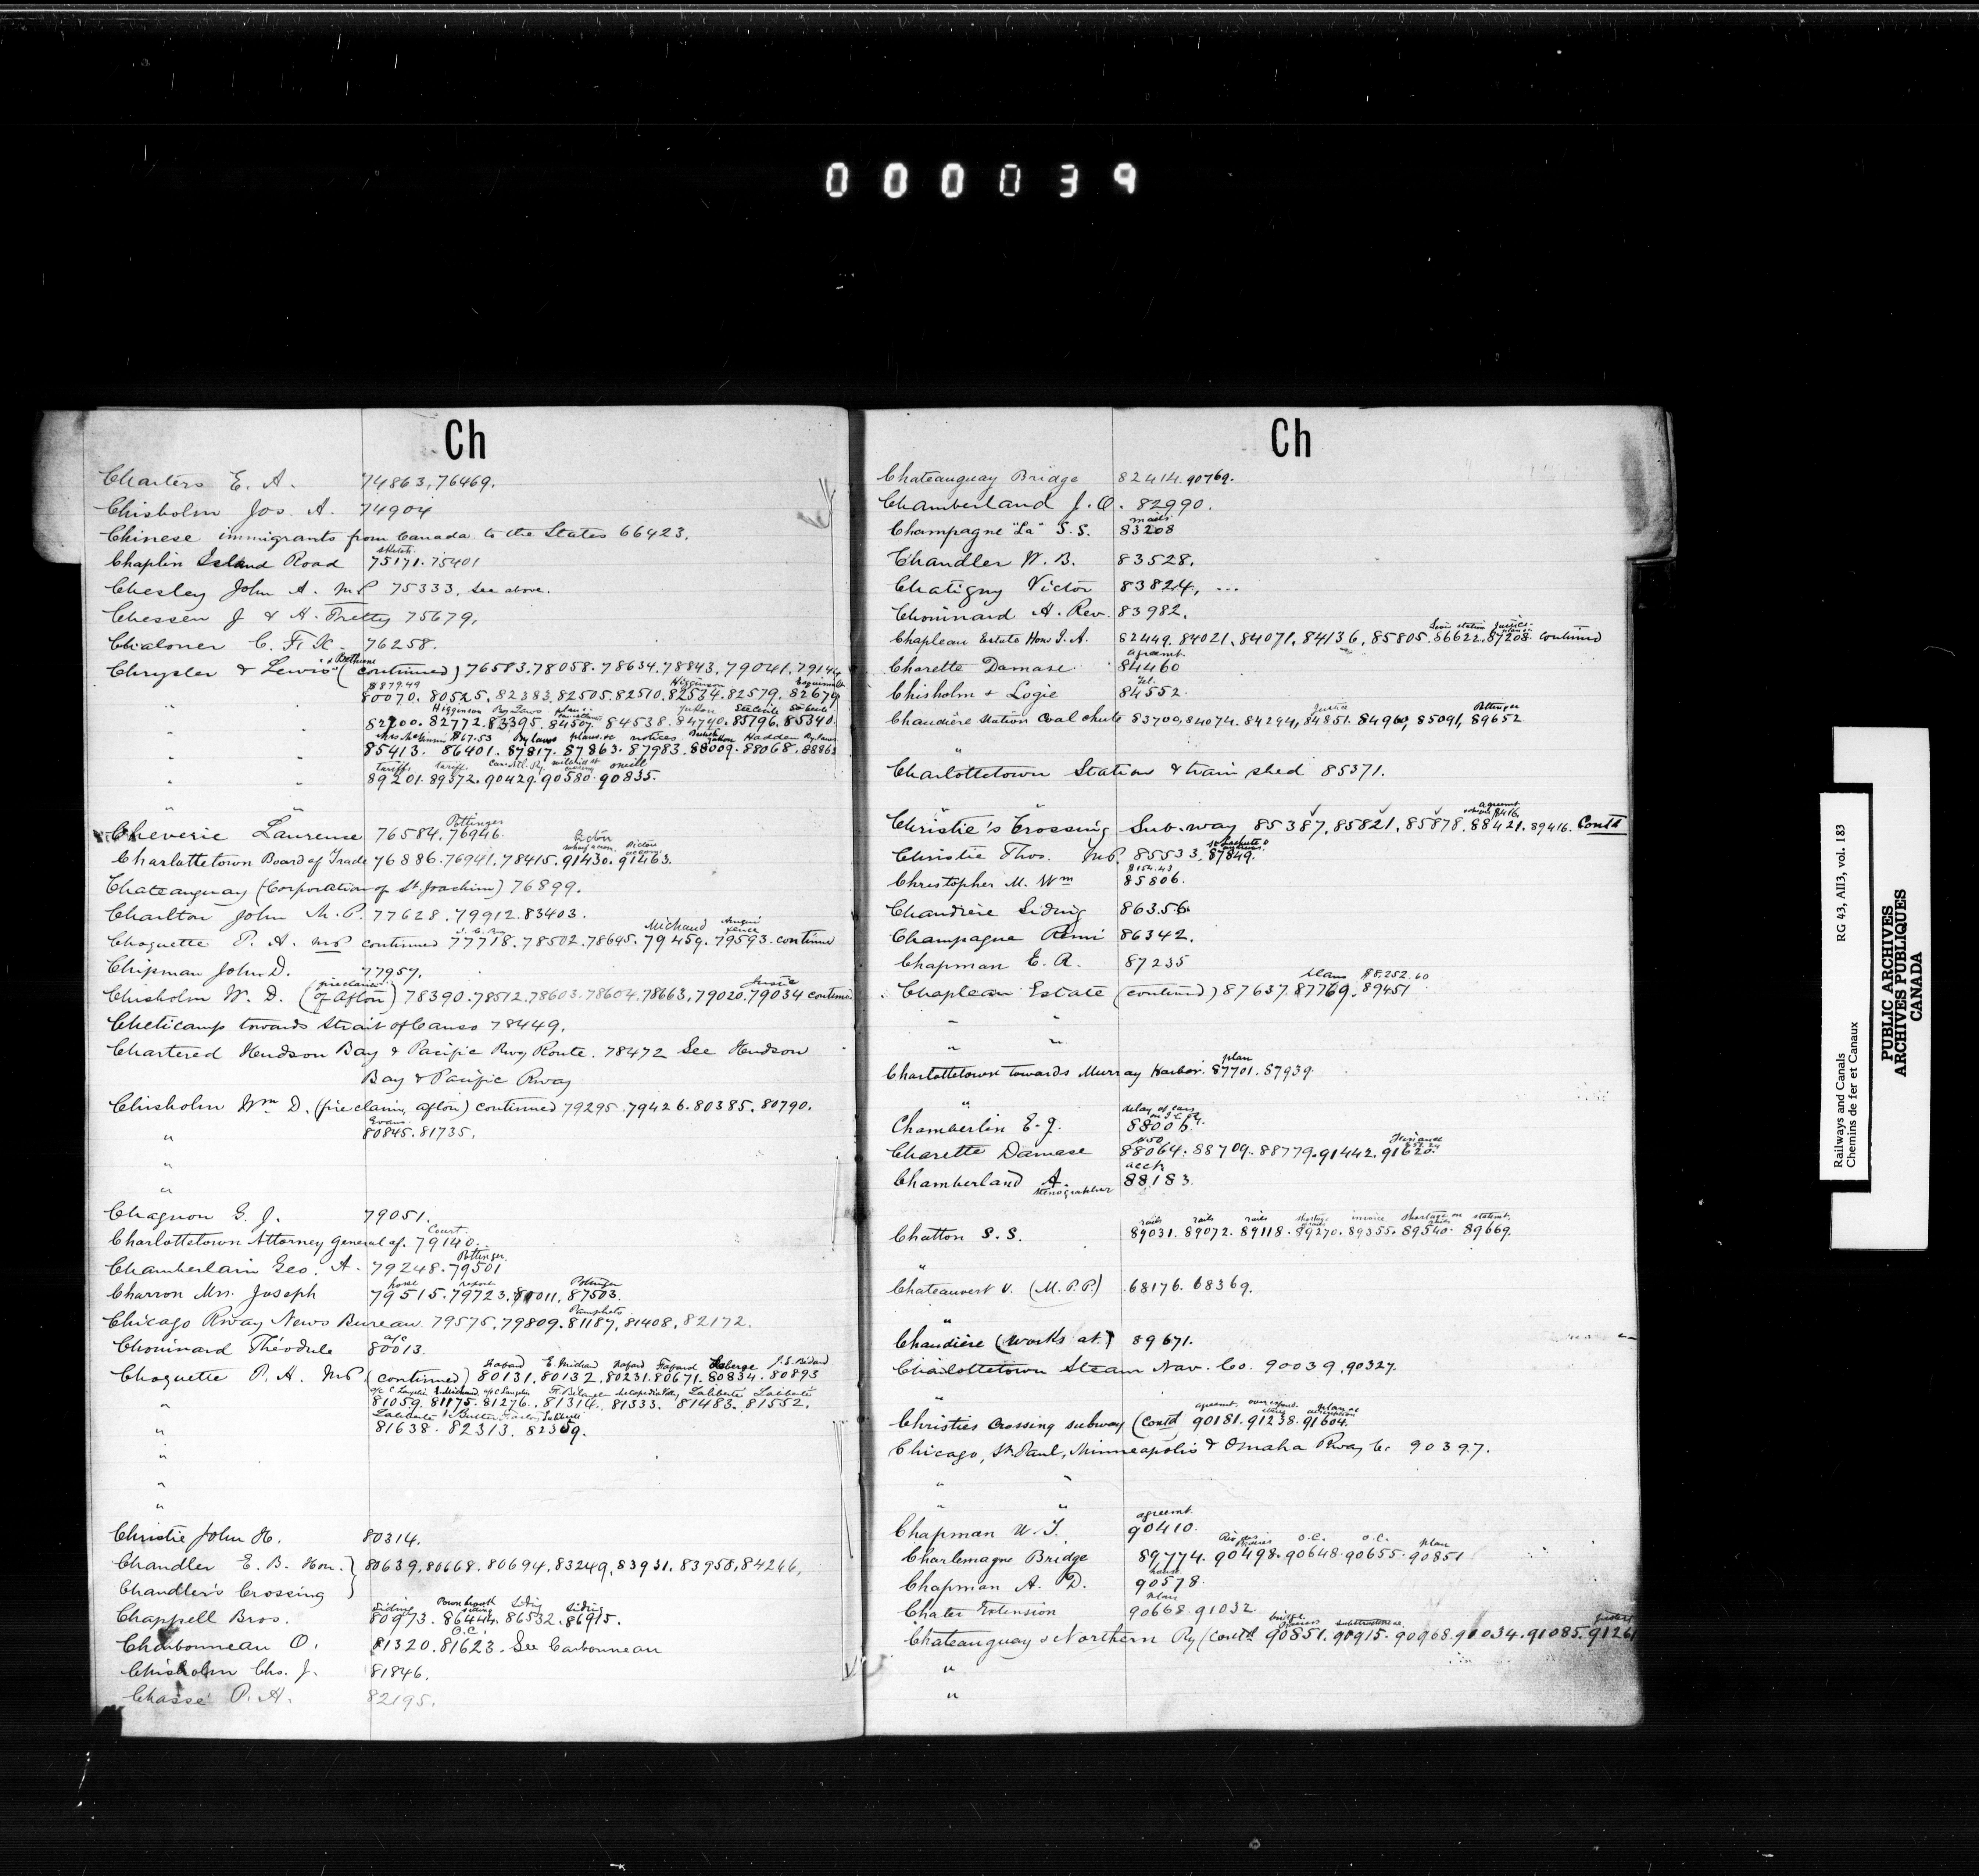 000039
Ch
Charters E. A. 74863, 76469.
Chisholm Jos. A. 74904
Chinese immigrants from Canada to the States 66423.
sketch
Chaplin Island Road 75171. 75401
Chesley John A. MP 75333, see above.
Chessen J & H. Pretty 75679,
Chaloner C. F. K. 76258.
& Bethune
Chrysler & Lewis (continued) 76583. 78058. 78634. 78843, 79041, 79144
$879.49 Higginson Esquimalt
80070. 80525, 82383, 82505. 82510. 82534. 82579. 82679
Higginson By Laws
82700. 82772. 83395. 84507. 84538. 84740. 85196. 85340
$67.53 By laws plans &c notices Hadden
85413. 86401. 87817. 87863. 87983. 88009. 88068. 88863
tariffs tariff. Can. Atl. Ry. oneill
89201. 89372. 90429. 90580. 90835.
Pottinger
Cheverie Laurence 76584. 76946.
Charlottetown Board of Trade 76886. 76941. 78415. 91430. 91463.
Chateauguay (Corporation of St. Joachim) 76899.
Charlton John M.P. 77628, 79912. 83403.
Michaud
Choquette P. A. MP continued 77718. 78502. 78695. 79459. 79593. continued
Chipman John D. 77957.
Chisholm W. D. (fire claim of Afton) 78390. 78512. 78603. 78604. 78663, 79020. 79034 continued
Cheticamp towards Strait of Canso 78449.
Chartered Hudson Bay & Pacific Rwy Route. 78472 See Hudson
Bay & Pacific Rway
Chisholm Wm D. (fire claim, afton) continued 79295. 79426. 80385. 80790.
Evans.
" 80845. 81735.
"
"
Chagnon G. J. 79051.
Court
Charlottetown Attorney General of. 79140.
Pottinger
Chamberlain Geo. A. 79248. 79501
horse report Pottinger
Charron Mrs. Joseph 79515. 79723. 80011, 87503.
Pamphlets
Chicago Rway News Bureau. 79575, 79809. 81187, 81408, 82172.
a/c
Chouinard Théodule 80013.
E. Michaud Laberge
Choquette P. A. MP (continued) 80131, 80132, 80231. 80671. 80834. 80893
Laliberté Laliberté
" 81059. 81175. 81276. 81314. 81333. 81483. 81552.
Laliberté
" 81638. 82313. 82359.
"
"
"
Christie John H. 80314.
Chandler E. B. Hon. 80639, 80668. 80694, 83249, 83931. 83958, 84266,
Chandler's Crossing
siding siding siding
Chappell Bros. 80973. 86444. 86532. 86915.
O.C.
Charbonneau O. 81320. 81623. See Carbonneau
Chisholm Chs. J. 81846.
Chassé P. A. 82195.
Ch
Chateauguay Bridge 82414. 90769.
Chamberland J. O. 82990.
mails
Champagne "La" S.S. 83208
Chandler W. B. 83528.
Chatigny Victor 83824, ...
Chouinard A. Rev. 83982.
Chapleau Estate Hon. J. A. 82449. 84021, 84071, 84136, 85805. 86622. 87208. continued
agreemt.
Charette Damase 84460
Tel.
Chisholm & Logie 84552.
Justice Pottinger
Chaudière Station Coal chute 83700, 84074. 84294, 84851. 84960, 85091, 89652
"
Charlottetown Station & train shed 85371.
"
agreemt.
Christie's Crossing Sub-way 85387, 85821, 85878, 88421. 89416. Contd
Christie Thos. MP. 85533. 87849.
$154.43
Christopher M. Wm 85806.
Chaudière Siding 86356.
Champagne Remi 86342.
Chapman E. A. 87235
$8,252.60
Chapleau Estate (continued) 87637. 87769. 89451
" "
" "
plan
Charlottetown towards Murray Harbor. 87701. 87939.
"
delay of cars
Chamberlin E. J. 88006.
Charette Damase 88064. 88709. 88779. 91442. 91620.
acct
Chamberland A. stenographer 88183.
rails rails rails shortage invoice shortage on rails statemt.
Chatton S.S. 89031. 89072. 89118. 89270. 89355. 89540. 89669.
"
Chateauvert V. (M.P.P.) 68176. 68369.
"
Chaudière (works at) 89671.
Charlottetown Steam Nav. Co. 90039, 90327.
"
agreemt.
Christies Crossing subway (Contd 90181. 91238. 91604.
Chicago, St. Paul, Minneapolis & Omaha Rway Co. 90397.
" "
" "
agreemt.
Chapman W. T. 90410.
O.C. O.C. plan
Charlemagne Bridge 89774. 90498. 90648. 90655. 90851
Chapman A. D. 90578.
plan
Chater Extension 90668. 91032
Chateauguay & Northern Ry (contd 90851. 90915. 90968. 91034. 91085. 91261
"
"
Railways and Canals
Chemins de fer et Canaux
RG 43, AII3, vol. 183
PUBLIC ARCHIVES
ARCHIVES PUBLIQUES
CANADA